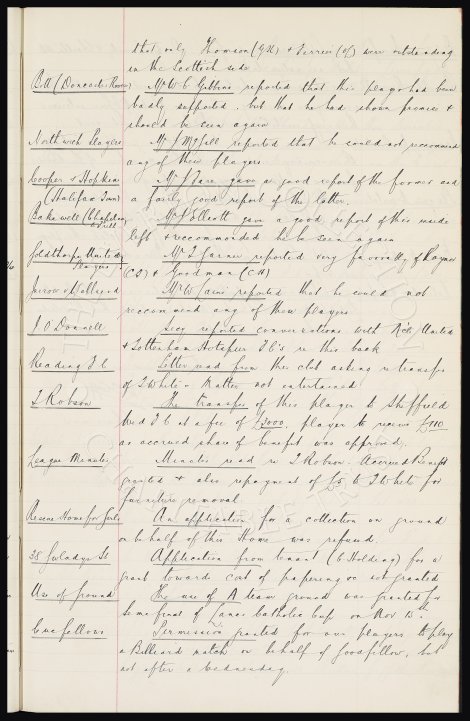 that only Howson (GK) & Ferrier (OL) were outstanding
in the Scottish side.
Bell (Doncaster Rovers) Mr W C Gibbins reported that this player had been
badly supported, but that he had shown promise &
should be seen again
Northwich Players Mr J reported that he could not recommend
any of these players
Cooper & Hopkins Mr J Fare gave a good report of the former and
(Halifax Town) a fairly good report of the latter.
Bakewell (Chapeltown Mr J Elliott gave a good report of this inside
left & recommended he be seen again
Goldthorpe United Mr T reported very favourably of
Players & Goodman (CH)
Mr W reported that he could not
recommend any of these players
J O'Donnell Secy reported conversations with United
& Tottenham Hotspur F C's re this back
Reading F C Letter read from this club asking re transfer
of T White & matter not entertained
T Robson The transfer of this player to Sheffield
Wed F C at a fee of £3000, player to receive
as accrued share of benefit was approved.
League Minutes Minutes read re T Robson. Accrued Benefit
granted & also repayment of £5 to T White for
furniture removal
Rescue Home for Girls An application for a collection on ground
on behalf of this Home was refused.
38 Goodison St Application from tenant (C Holding) for a
grant toward cost of papering was not granted
Use of Ground The use of A team ground was granted for
semi final of Lancs Catholic Cup on Nov 15th
Permission granted for our players to play
a Billiard match on behalf of Goodfellows, but
not after a Wednesday.